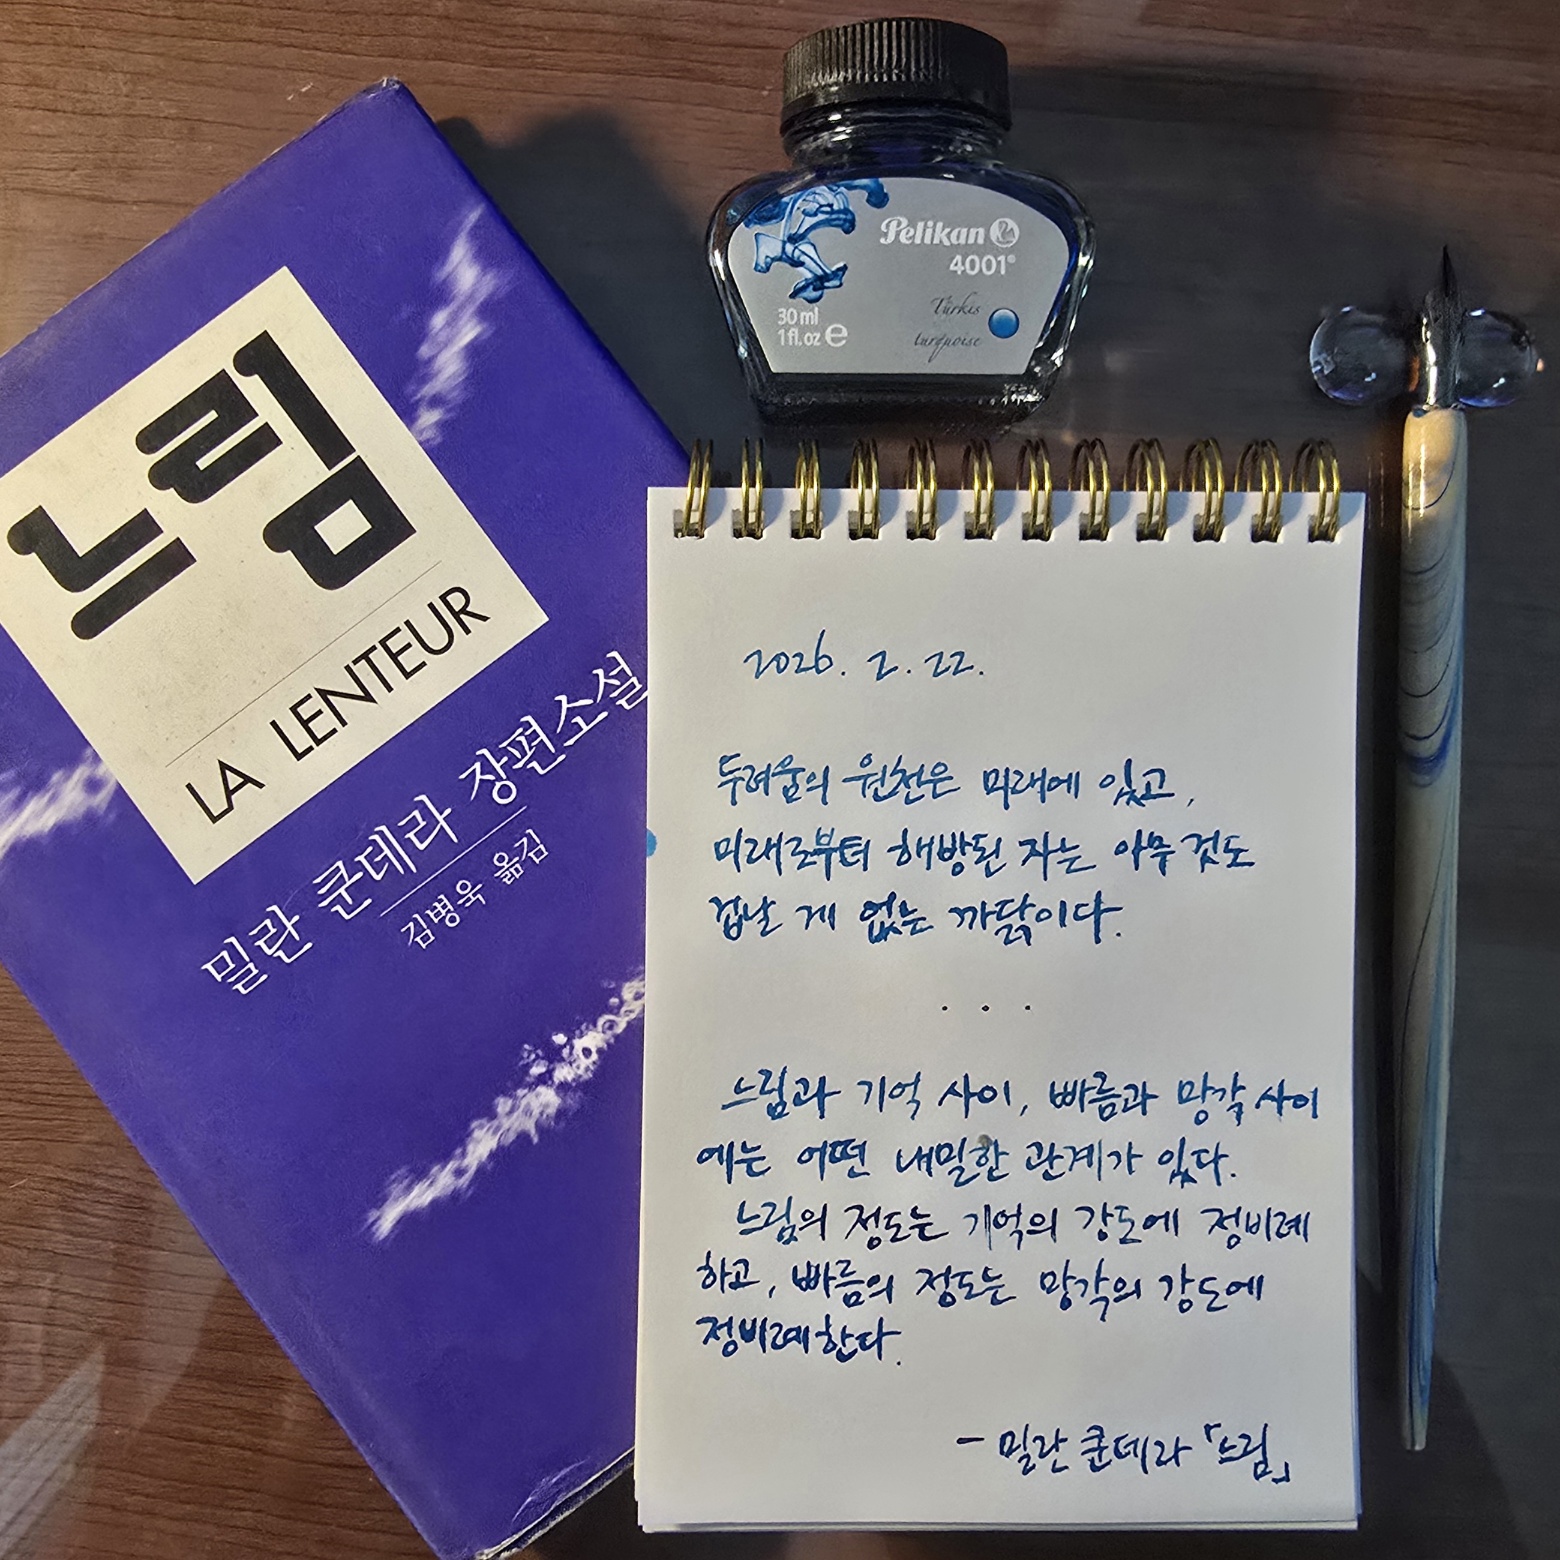 느림
LA LENTEUR
밀란 쿤데라 장편소설
김병욱 옮김
Pelikan
4001®
30 ml
1 fl. oz e
Türkis
turquoise
2026. 2. 22.
두려움의 원천은 미래에 있고,
미래로부터 해방된 자는 아무것도
겁날 게 없는 까닭이다.
. . .
느림과 기억 사이, 빠름과 망각 사이
에는 어떤 내밀한 관계가 있다.
느림의 정도는 기억의 강도에 정비례
하고, 빠름의 정도는 망각의 강도에
정비례한다.
- 밀란 쿤데라 「느림」